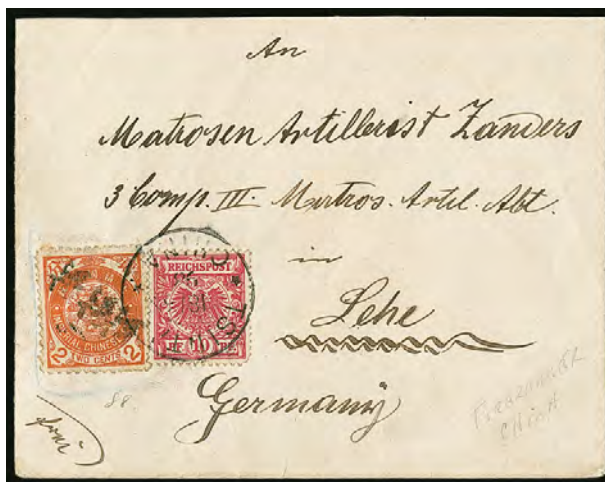 An
Matrosen Artillerist Zanders
3 Comp. III. Matros. Artil. Abt.
in
Lehe
Germany
REICHSPOST
10
IMPERIAL CHINESE
2 TWO CENTS 2
TSI
CHINA